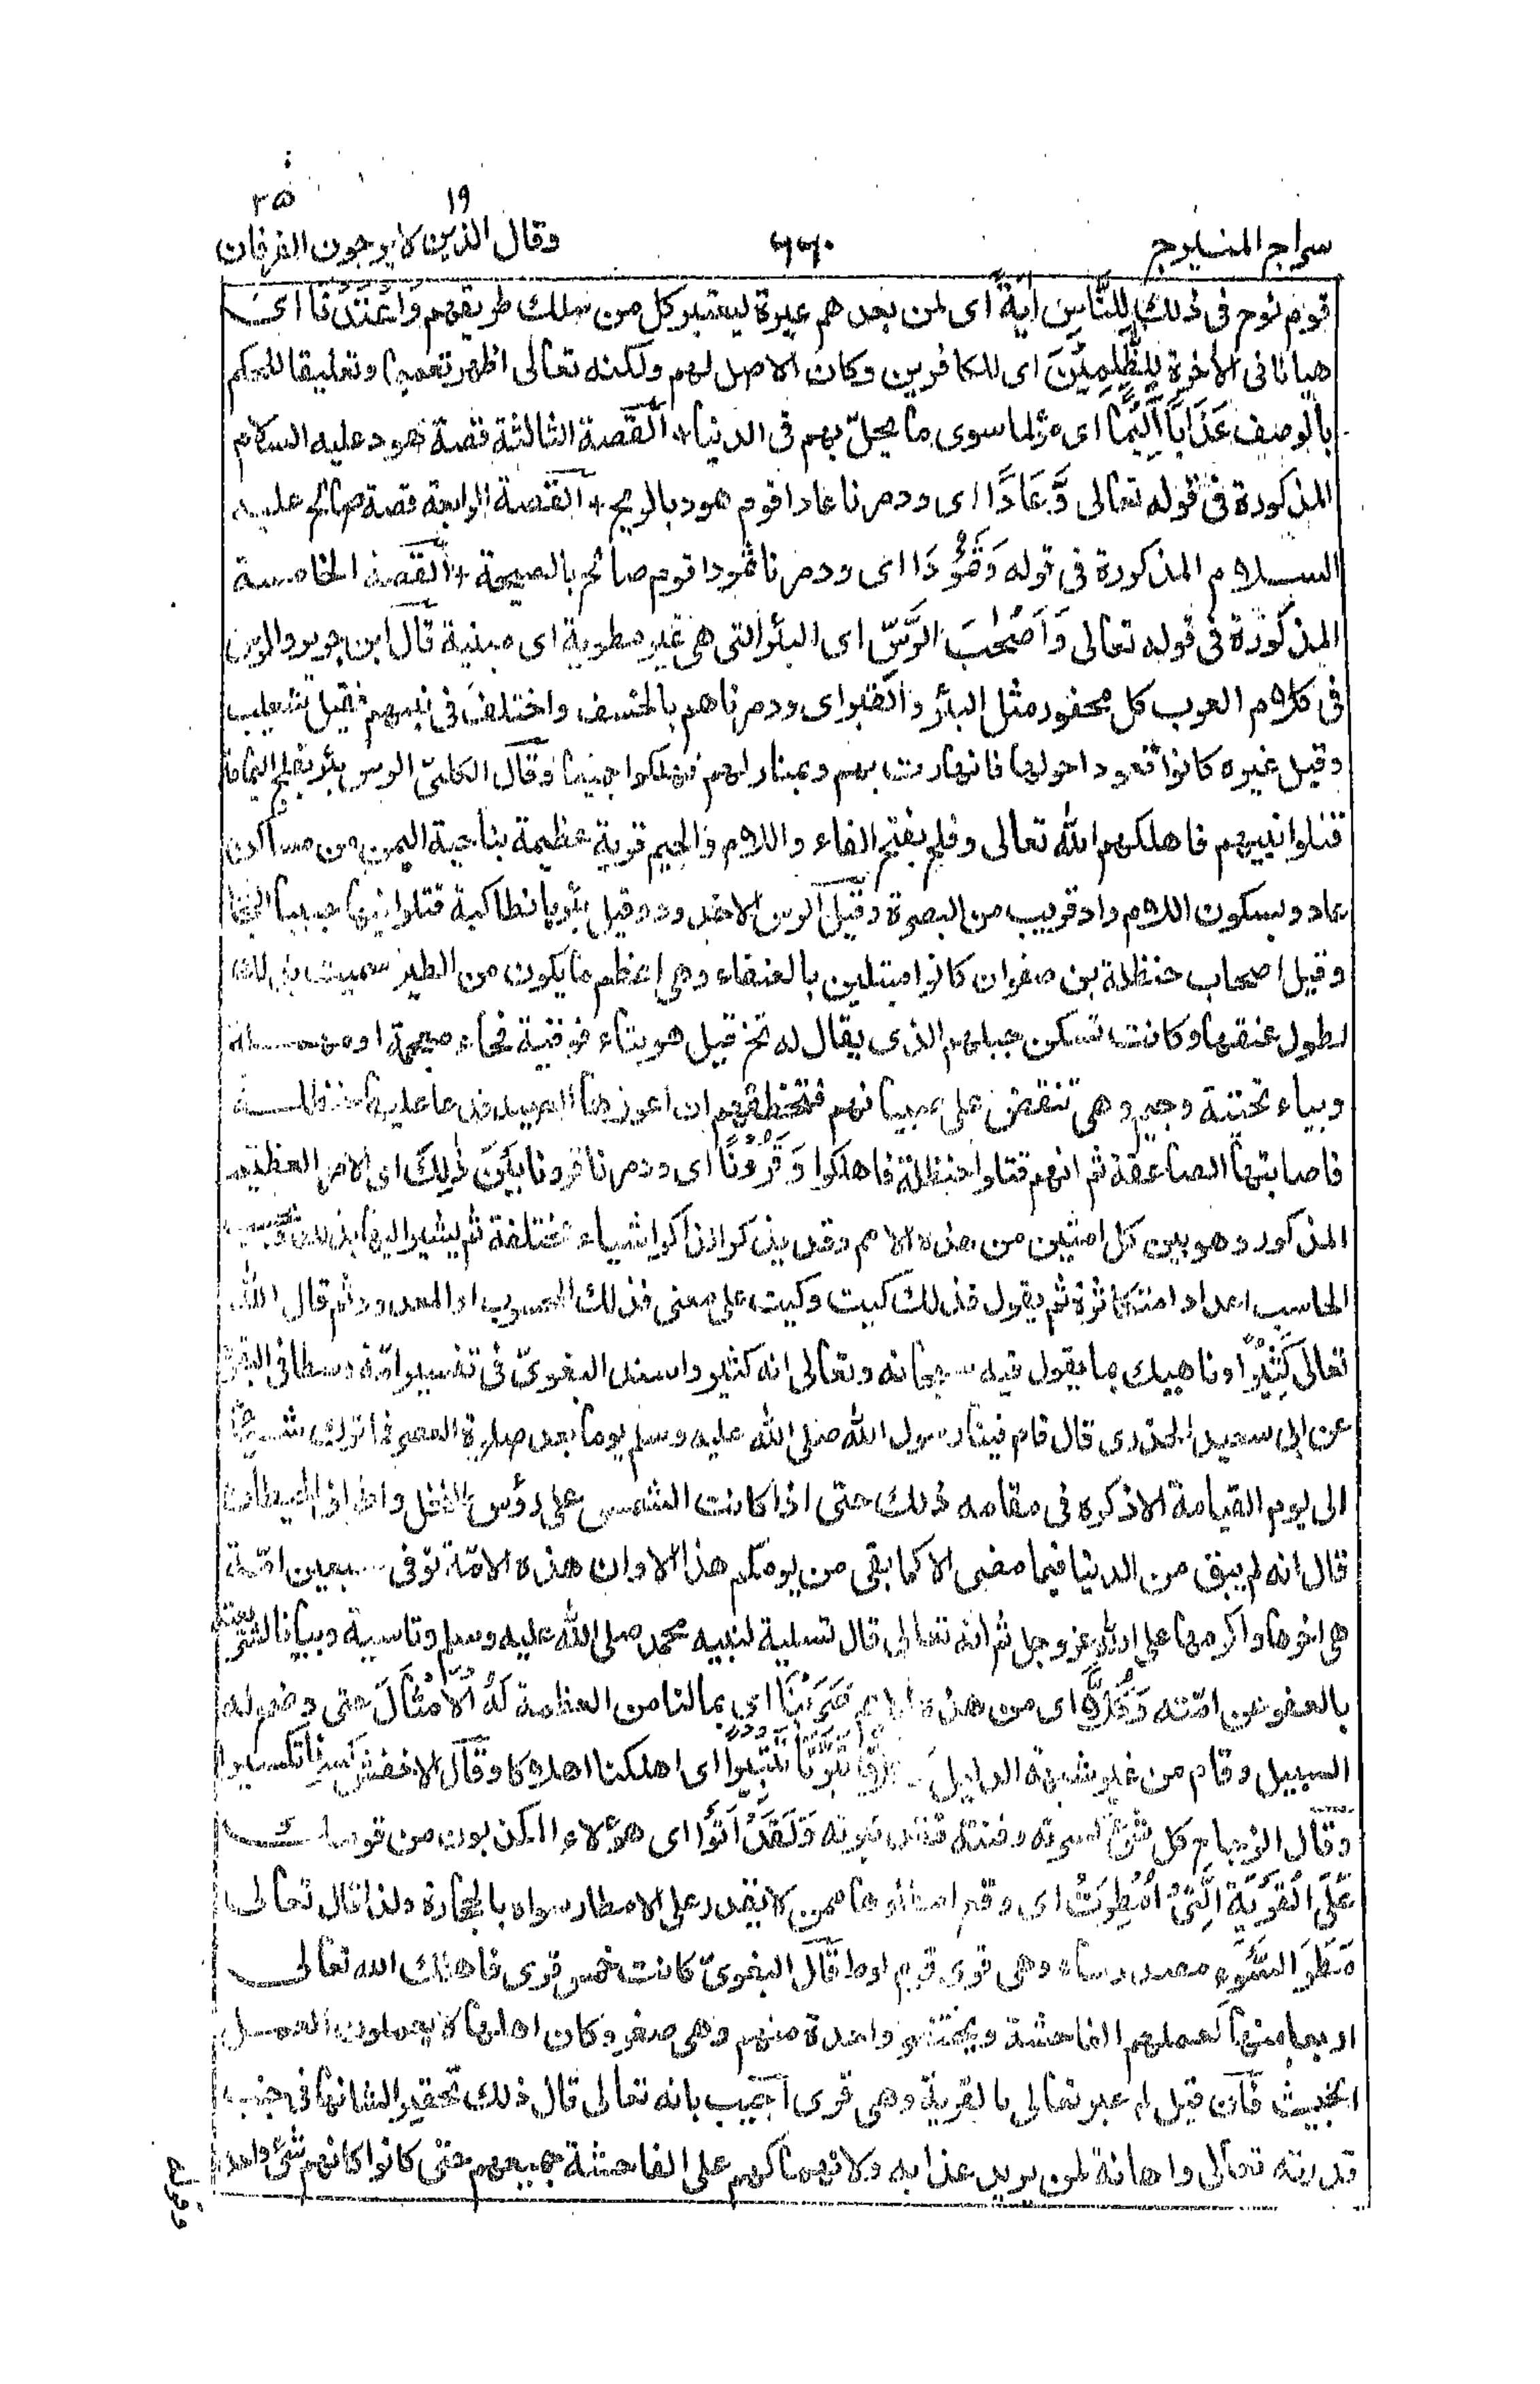 ۱۹ ۲۵
سراج المنير ج ۶۶۰ وقال الذين لا يرجون الفرقان
قوم نوح فى ذلك لِلنَّاسِ اٰيَةً اى لمن بعدهم عبرة ليعتبر كل من سلك طريقهم وَاَعْتَدْنَا اى
هيانا فى الاٰخرة لِلظّٰلِمِيْنَ اى للكافرين وكان الاصل لهم ولكنه تعالى اظهر تعميما وتعليقا للحكم
بالوصف عَذَابًا اَلِيْمًا اى مؤلما سوى ما يحلّ بهم فى الدنيا + القصة الثالثة قصة هود عليه السلام
المذكورة فى قوله تعالى وَّعَادًا اى ودمرنا عادا قوم هود بالريح + القصة الرابعة قصة صالح عليه
السلام المذكورة فى قوله وَثَمُوْدَا اى ودمرنا ثمودا قوم صالح بالصيحة + القصة الخامسة
المذكورة فى قوله تعالى وَاَصْحٰبَ الرَّسِّ اى البئر التى هى غير مطوية اى مبنية قال ابن جرير والرس
فى كلام العرب كل محفور مثل البئر والقبر اى ودمرناهم بالخسف واختلف فى نبيهم فقيل شعيب
وقيل غيره كانوا قعودا حولها فانهارت بهم وبمنازلهم فهلكوا جميعا وقال الكلبىّ الرس بئر بفلج اليمامة
قتلوا نبيهم فاهلكهم الله تعالى وفلج بفتح الفاء واللام والجيم قرية عظيمة بناحية اليمن من مساكن
عاد وبسكون اللام واد قريب من البصرة وقيل الرس الاخدود وقيل بئر بانطاكية قتلوا فيها حبيبا النجار
وقيل اصحاب حنظلة بن صفوان كانوا مبتلين بالعنقاء وهى اعظم ما يكون من الطير سميت بذلك
لطول عنقها وكانت تسكن جبلهم الذى يقال له تخ قيل هو بتاء فوقية فخاء معجمة او مهملة
وبياء تحتية وجيم وهى تنقض على صبيانهم فتخطفهم ان اعوزها الصيد فدعا عليها حنظلة
فاصابتها الصاعقة ثم انهم قتلوا حنظلة فاهلكوا وَقُرُوْنًا اى ودمرنا قرونا بَيْنَ ذٰلِكَ اى الامر العظيم
المذكور وهو بين كل امتين من هذه الامم وقد يذكر الذاكر اشياء مختلفة ثم يشير اليها بذلك
الحاسب اعدادا متكاثرة ثم يقول فذلك كيت وكيت على معنى فذلك المحسوب او المعدود ثم قال الله
تعالى كَثِيْرًا وناهيك بما يقول فيه سبحانه وتعالى انه كثير واسند البغوىّ فى تفسير امّة وسطا فى البقرة
عن ابى سعيد الخدرى قال قام فينا رسول الله صلى الله عليه وسلم يوما بعد صلوة العصر فما ترك شيئا
الى يوم القيامة الا ذكره فى مقامه ذلك حتى اذا كانت الشمس على رؤس النخل واطراف الحيطان
قال انه لم يبق من الدنيا فيما مضى الا كما بقى من يومكم هذا الا وان هذه الامّة توفى سبعين امّة
هى اٰخرها واكرمها على الله عز وجل ثم انه تعالى قال تسلية لنبيه محمد صلى الله عليه وسلم وتاسية وبيانا لتشريفه
بالعفو عن امّته وَكُلًّا اى من هذه الامم ضَرَبْنَا اى بمالنا من العظمة لَهُ الْاَمْثَالَ حتى وضح له
السبيل وقام من غير شبهة الدليل وَكُلًّا تَبَّرْنَا تَتْبِيْرًا اى اهلكنا اهلاكا وقال الاخفش كسرنا تكسيرا
وقال الزجاج كل شئ كسرته وفتته فقد تبرته وَلَقَدْ اَتَوْا اى هؤلاء المكذبون من قومك
عَلَى الْقَرْيَةِ الَّتِىْ اُمْطِرَتْ اى وقع امطارها ممن لا يقدر على الامطار سواه بالحجارة ولذا قال تعالى
مَطَرَ السَّوْءِ مصدر ساء وهى قرى قوم لوط قال البغوىّ كانت خمس قرى فاهلك الله تعالى
اربعا منها لعملهم الفاحشة ونجت واحدة منهم وهى صغر وكان اهلها لا يعملون العمل
الخبيث فان قيل لم عبر تعالى بالقرية وهى قرى اجيب بانه تعالى قال ذلك تحقيرا لشانها فى جنب
قدرته تعالى واهانة لمن يريد عذابه ولانهماكهم على الفاحشة جميعهم حتى كانوا كانهم شئ واحد